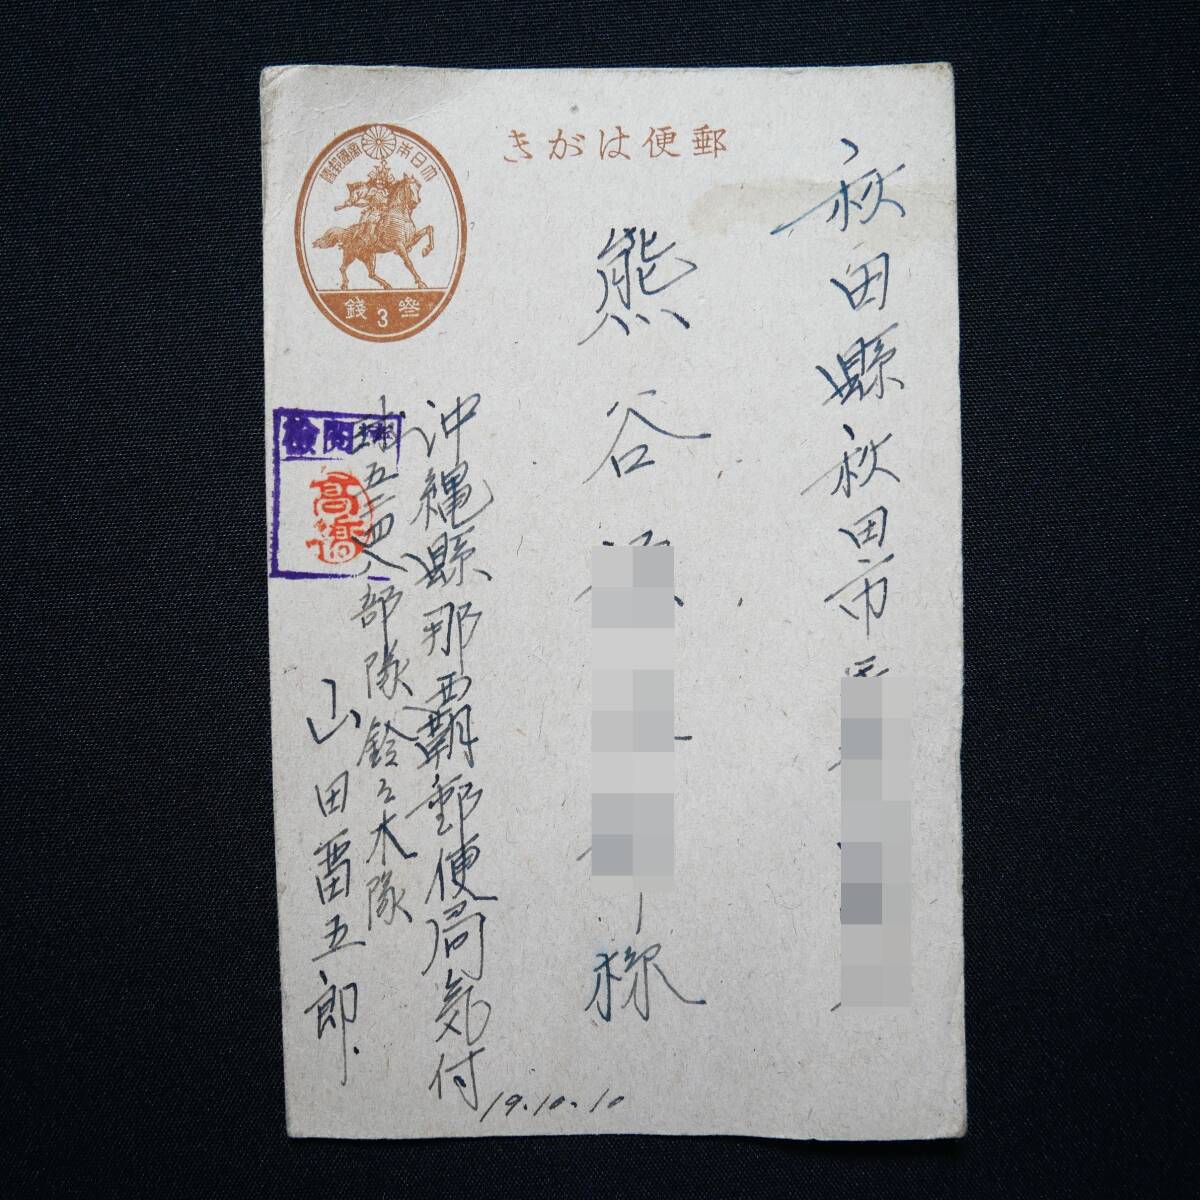 きがは便郵
大日本帝國郵便
参 3 錢
秋田縣秋田市
熊谷
様
沖縄縣那覇郵便局気付
球五二四八部隊鈴々木隊
山田雷五郎
檢閲濟
高橋
19.10.10